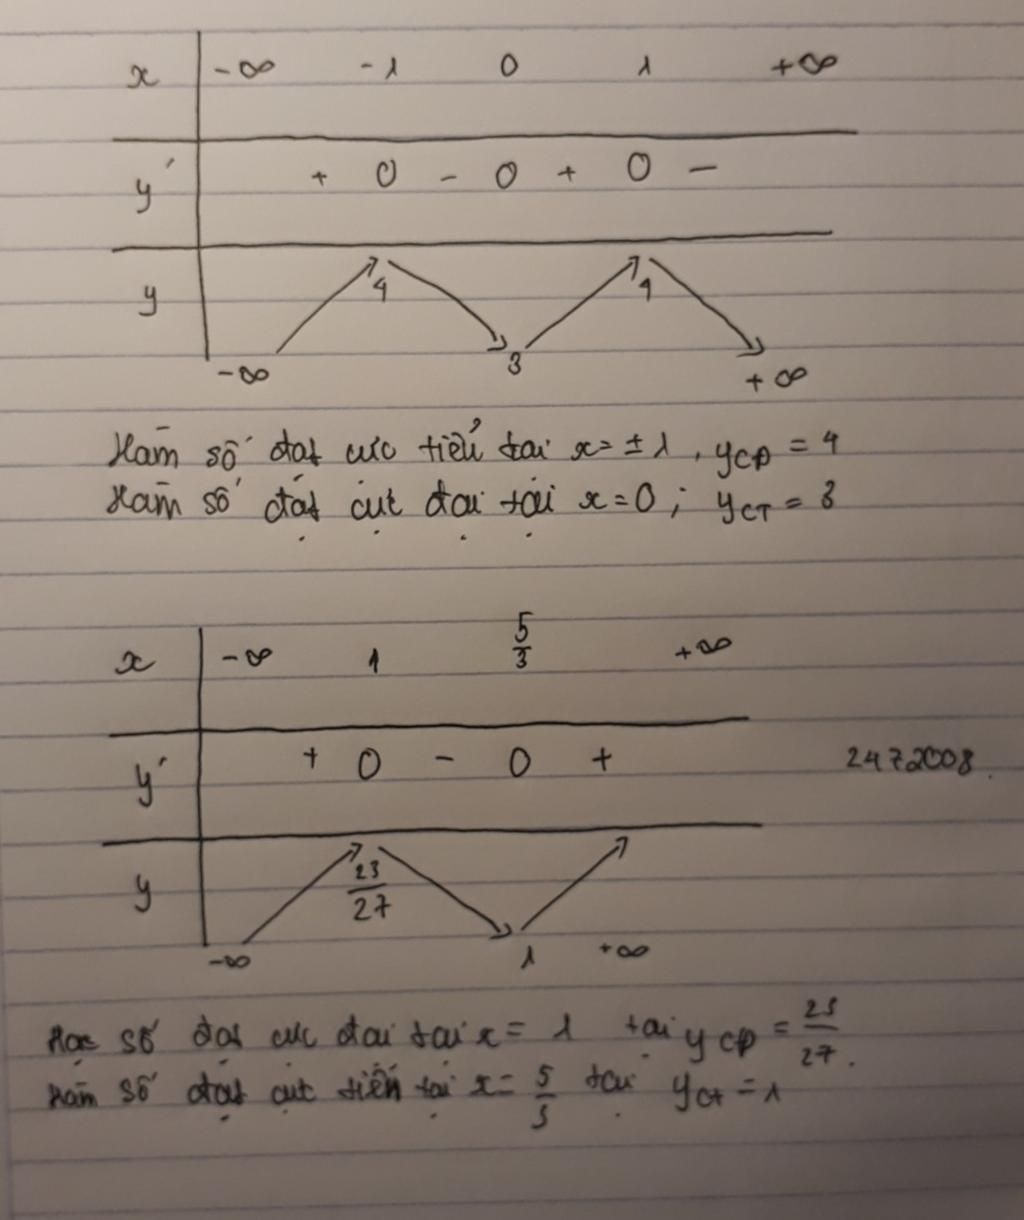 x -∞ -1 0 1 +∞
y' + 0 - 0 + 0 -
y 4 4
-∞ 3 +∞
Hàm số đạt cực tiểu tại x=±1, yCĐ = 4
Hàm số đạt cực đại tại x=0; yCT = 3
x -∞ 1 5/3 +∞
y' + 0 - 0 + 2472008.
y 23/27
-∞ 1 +∞
số đạt cực đại tại x= 1 tại yCĐ = 23/27.
Hàm số đạt cực tiểu tại x= 5/3 tại yCT = 1